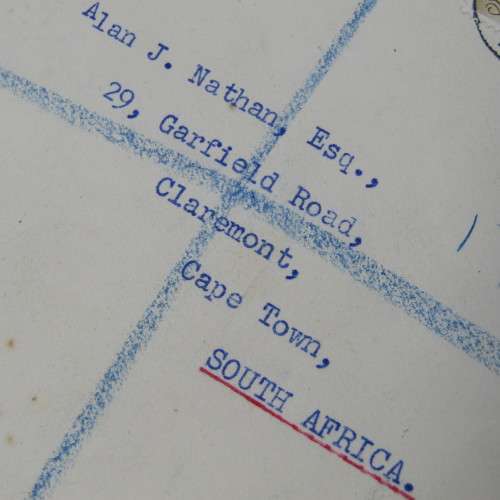 Alan J. Nathan, Esq.,
29, Garfield Road,
Claremont,
Cape Town,
SOUTH AFRICA.